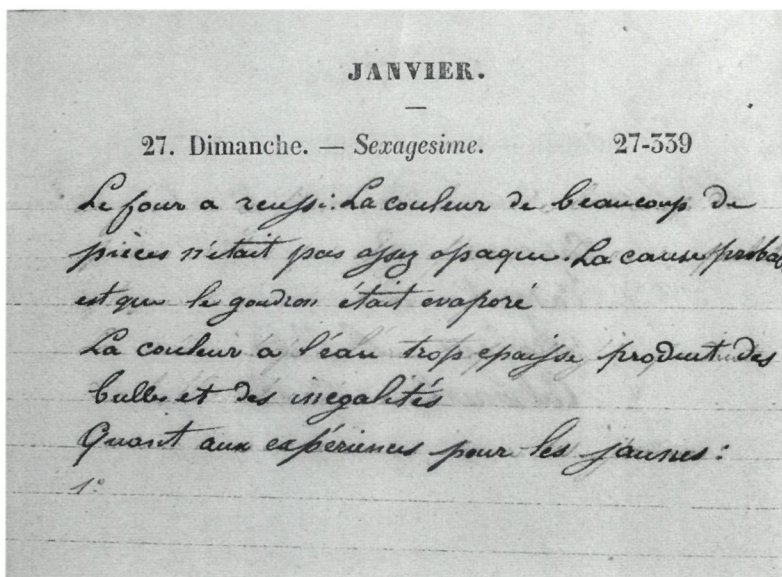 JANVIER.
27. Dimanche. — Sexagesime. 27-339
Le four a reussi. La couleur de beaucoup de
pièces n'était pas assez opaque. La cause probab
est que le goudron était evaporé
La couleur a l'eau trop epaisse produit des
bulles et des inegalités
Quant aux expériences pour les jaunes :
1°